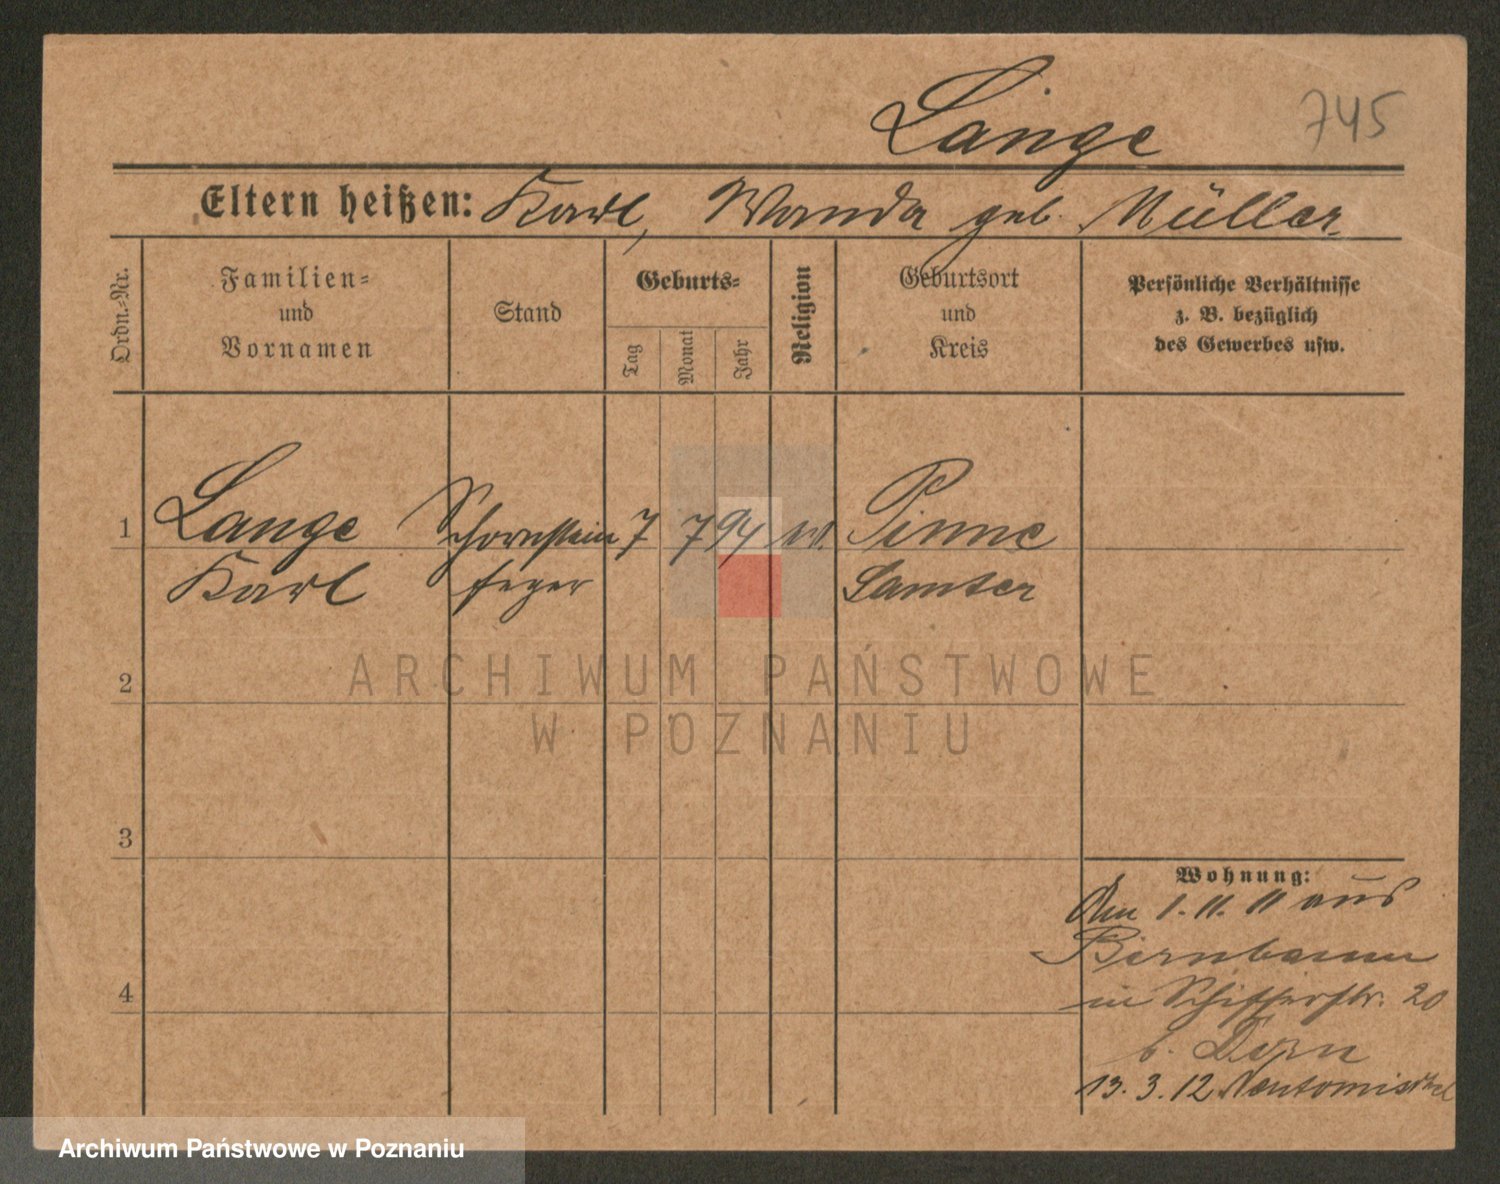 Lange 745
Eltern heißen: Karl, Wanda geb. Müller
Ordn.-Nr.
Familien-
und
Vornamen
Stand
Geburts-
Tag
Monat
Jahr
Religion
Geburtsort
und
Kreis
Persönliche Verhältnisse
z. B. bezüglich
des Gewerbes usw.
1 Lange Schornstein 7 7 94 Pinne
Karl feger Samter
2
ARCHIWUM PAŃSTWOWE
W POZNANIU
3
Wohnung:
1. 11. 11 aus
Birnbaum
in Schifferstr. 20
b.
4
13. 3. 12 Neutomischel
Archiwum Państwowe w Poznaniu